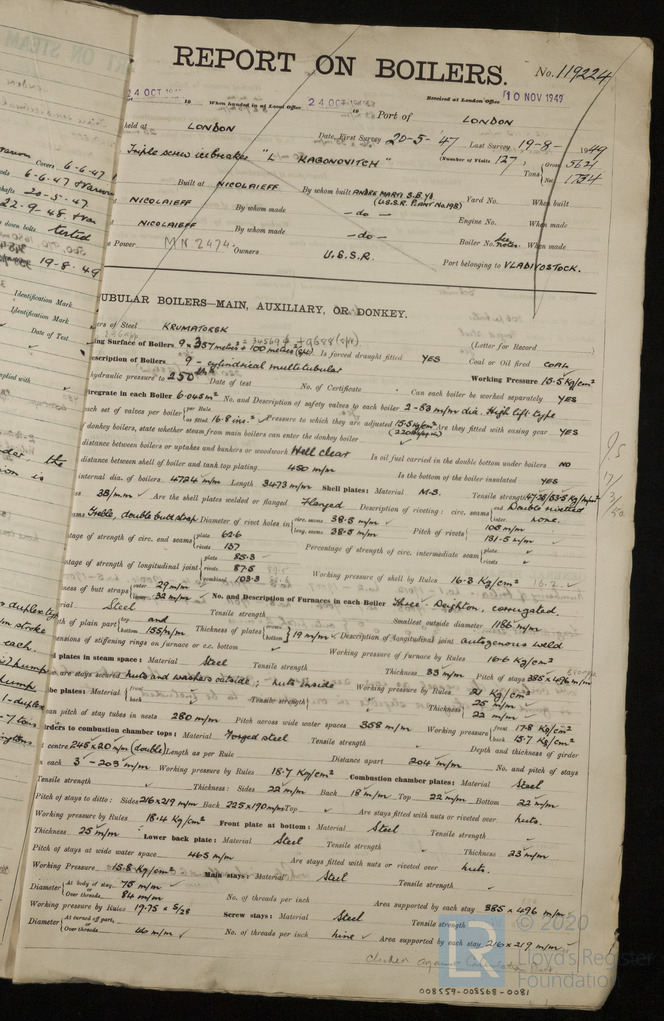 REPORT ON BOILERS.
No. 119224
Received at London Office 10 NOV 1949
When handed in at Local Office 24 OCT
Port of LONDON
held at LONDON
Date, First Survey 20-5-'47 Last Survey 19-8-1949
(Number of Visits 127)
Triple screw icebreaker "L KAGONOVITCH"
Tons Gross 5621
Net 1734
Built at NICOLAIEFF By whom built ANDRE MARTI S.B.Yd (U.S.S.R. PLANT No.198) Yard No. When built
NICOLAIEFF By whom made -do- Engine No. When made
NICOLAIEFF By whom made -do- Boiler No. See notes. When made
Power MN 2474. Owners U.S.S.R. Port belonging to VLADIVOSTOCK.
TUBULAR BOILERS—MAIN, AUXILIARY, OR DONKEY.
of Steel KRUMATORSK
(Letter for Record )
ing Surface of Boilers 9 x 357 metres² + 100 metres² Is forced draught fitted YES Coal or Oil fired COAL
escription of Boilers 9 - cylindrical multitubular Working Pressure 15.5 kg/cm²
hydraulic pressure to 250 Date of test No. of Certificate Can each boiler be worked separately YES
regate in each Boiler 6.045 m² No. and Description of safety valves to each boiler 2-83 m/m dia. High lift type
ach set of valves per boiler per Rule
as fitted 16.8 ins.² Pressure to which they are adjusted 15.5 Kg/cm² Are they fitted with easing gear YES
donkey boilers, state whether steam from main boilers can enter the donkey boiler
distance between boilers or uptakes and bunkers or woodwork Well clear Is oil fuel carried in the double bottom under boilers NO
distance between shell of boiler and tank top plating 450 m/m Is the bottom of the boiler insulated YES
internal dia. of boilers 4724 m/m Length 3473 m/m Shell plates: Material M.S. Tensile strength
38 m/m Are the shell plates welded or flanged Flanged Description of riveting: circ. seams end Double riveted
inter. none.
Treble, double butt strap Diameter of rivet holes in circ. seams 38.5 m/m
long. seams 38.5 m/m Pitch of rivets 105 m/m
131.5 m/m
tage of strength of circ. end seams plate 62.6
rivets 137 Percentage of strength of circ. intermediate seam plate
rivets
tage of strength of longitudinal joint plate 85.3
rivets 87.5
combined 103.3 Working pressure of shell by Rules 16.3 Kg/cm²
ness of butt straps outer 29 m/m
inner 32 m/m No. and Description of Furnaces in each Boiler Three Deighton, corrugated.
rial Steel Tensile strength Smallest outside diameter 1186 m/m
th of plain part top and
bottom 155 m/m Thickness of plates 19 m/m Description of longitudinal joint autogenous weld
ensions of stiffening rings on furnace or c.c. bottom Working pressure of furnace by Rules 16.6 Kg/cm²
plates in steam space: Material Steel Tensile strength Thickness 33 m/m Pitch of stays 385 x 496 m/m
are stays secured nuts and washers outside; nuts inside Working pressure by Rules 21 Kg/cm²
be plates: Material front
back Tensile strength Thickness 25 m/m
22 m/m
an pitch of stay tubes in nests 280 m/m Pitch across wide water spaces 358 m/m Working pressure front 17.8 Kg/cm²
back 15.7 Kg/cm²
irders to combustion chamber tops: Material Forged steel Tensile strength Depth and thickness of girder
centre 245 x 20 m/m (double) Length as per Rule Distance apart 204 m/m No. and pitch of stays
n each 3 - 203 m/m Working pressure by Rules 18.7 Kg/cm² Combustion chamber plates: Material Steel
Tensile strength Thickness: Sides 22 m/m Back 18 m/m Top 22 m/m Bottom 22 m/m
Pitch of stays to ditto: Sides 216 x 219 m/m Back 225 x 190 m/m Top Are stays fitted with nuts or riveted over nuts.
Working pressure by Rules 18.4 Kg/cm² Front plate at bottom: Material Steel Tensile strength
Thickness 25 m/m Lower back plate: Material Steel Tensile strength Thickness 23 m/m
Pitch of stays at wide water space 465 m/m Are stays fitted with nuts or riveted over nuts.
Working Pressure 15.8 Kg/cm² Main stays: Material Steel Tensile strength
Diameter At body of stay, 75 m/m
or Over threads 84 m/m No. of threads per inch Area supported by each stay 385 x 496 m/m
Working pressure by Rules 19.75 x 5/28 Screw stays: Material Steel Tensile strength
Diameter At turned off part,
or Over threads 46 m/m No. of threads per inch nine Area supported by each stay 216 x 219 m/m
© 2020
Lloyd's Register
Foundation
LR
008559-008568-0081
Covers 6-6-47
6-6-47
20-5-47
22-9-48
down bolts tested
19-8-49
Identification Mark
Identification Mark
Date of Test